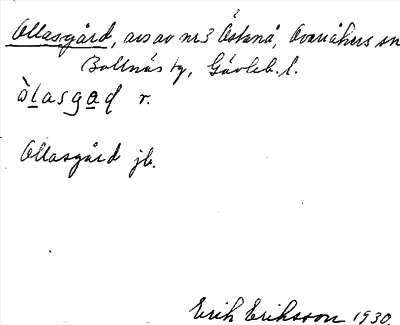 Ollasgård, avs av nr 3 Östanå, Ovanåkers sn
Bollnäs tg, Gävleb. l.
òlasgaɖ r.
Ollasgård jb.
Erik Eriksson 1930.